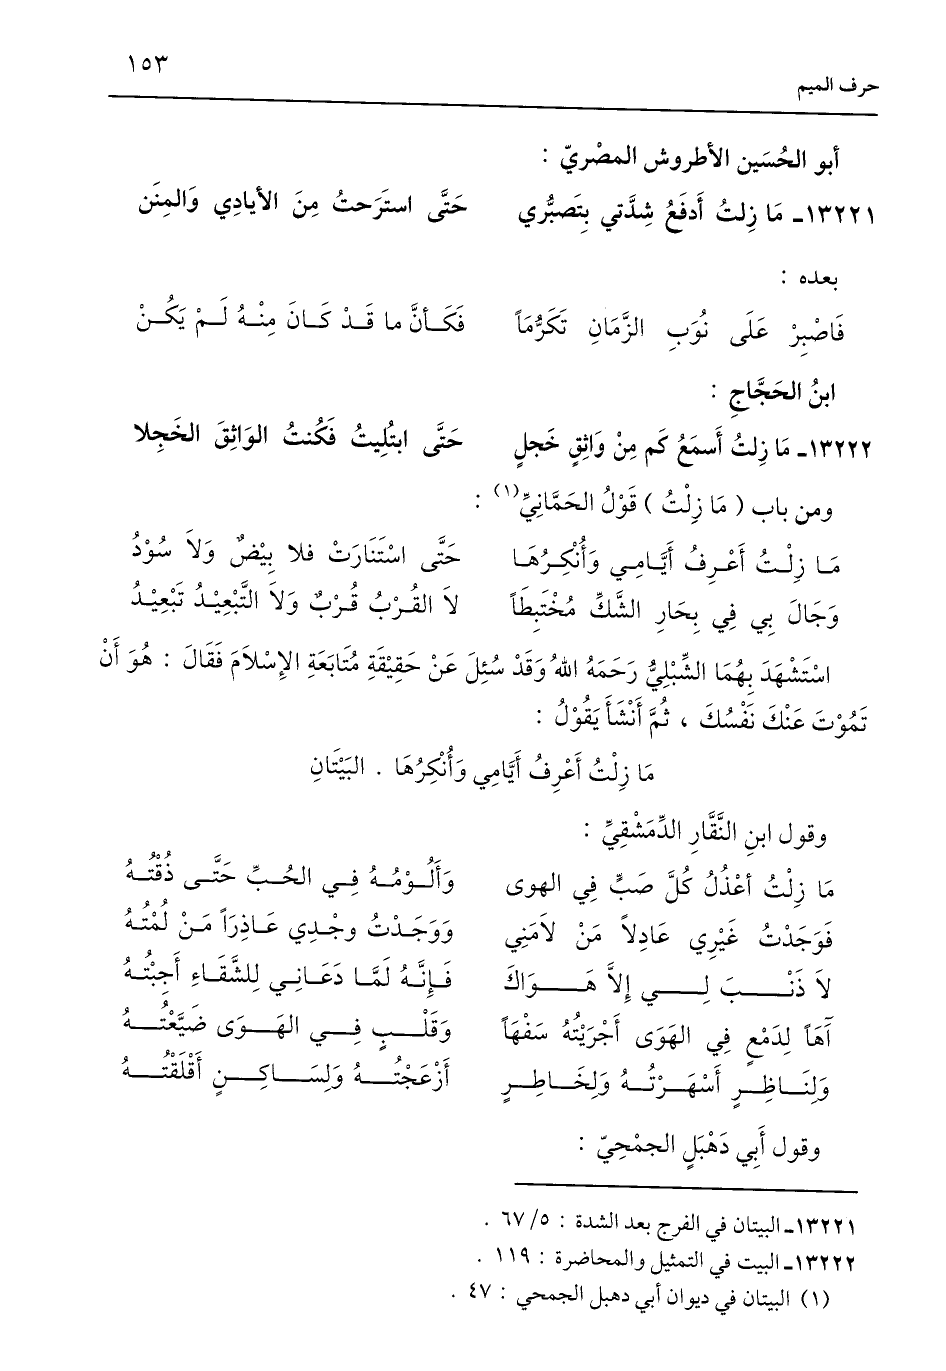 ١٥٣
حرف الميم
أبو الحُسَين الأطروش المصْريّ :
١٣٢٢١ـ مَا زِلتُ أَدفَعُ شِدَّتي بِتَصبُّري حَتَّى استَرَحتُ مِنَ الأيادِي وَالمِنَن
بعده :
فَاصْبِرْ عَلَى نُوَبِ الزَّمَانِ تَكَرُّمَاً فَكَأنَّ ما قَدْ كَانَ مِنْهُ لَمْ يَكُنْ
ابنُ الحَجَّاجِ :
١٣٢٢٢ـ مَا زِلتُ أَسمَعُ كَم مِنْ وَاثِقٍ خَجلٍ حَتَّى ابتُلِيتُ فَكُنتُ الوَاثِقَ الخَجلا
ومن باب ( مَا زِلْتُ ) قَوْلُ الحَمَّانِيِّ(١) :
مَا زِلْتُ أَعْرِفُ أَيَّامِي وَأُنْكِرُهَا حَتَّى اسْتَنَارَتْ فلا بِيْضٌ وَلاَ سُوْدُ
وَجَالَ بِي فِي بِحَارِ الشَّكِّ مُخْتَبِطَاً لاَ القُرْبُ قُرْبٌ وَلاَ التَّبْعِيْدُ تَبْعِيْدُ
اسْتَشْهَدَ بِهُمَا الشِّبْلِيُّ رَحَمَهُ اللهُ وَقَدْ سُئِلَ عَنْ حَقِيْقَةِ مُتَابَعَةِ الإِسْلاَمَ فَقَالَ : هُوَ أَنْ
تَمُوْتَ عَنْكَ نَفْسُكَ ، ثُمَّ أَنْشَأَ يَقُوْلُ :
مَا زِلْتُ أَعْرِفُ أَيَّامِي وَأُنْكِرُهَا . البَيْتَانِ
وقول ابنِ النَّقَّارِ الدِّمَشْقِيِّ :
مَا زِلْتُ أعْذُلُ كُلَّ صَبٍّ فِي الهوى وَأَلُوْمُهُ فِي الحُبِّ حَتَّى ذُقْتُهُ
فَوَجَدْتُ غَيْرِي عَادِلاً مَنْ لاَمَنِي وَوَجَدْتُ وجْدِي عَاذِرَاً مَنْ لُمْتُهُ
لاَ ذَنْبَ لِي إِلاَّ هَوَاكَ فَإِنَّهُ لَمَّا دَعَانِي لِلشَّقَاءِ أَجِبْتُهُ
آهَاً لِدَمْعٍ فِي الهَوَى أَجْرَيْتُهُ سَفْهَاً وَقَلْبٍ فِي الهَوَى ضَيَّعْتُهُ
وَلِنَاظِرٍ أَسْهَرْتُهُ وَلِخَاطِرٍ أَزْعَجْتُهُ وَلِسَاكِنٍ أَقْلَقْتُهُ
وقول أَبِي دَهْبَلٍ الجمْحِيّ :
١٣٢٢١ـ البيتان في الفرج بعد الشدة : ٥/ ٦٧ .
١٣٢٢٢ـ البيت في التمثيل والمحاضرة : ١١٩ .
(١) البيتان في ديوان أبي دهبل الجمحي : ٤٧ .